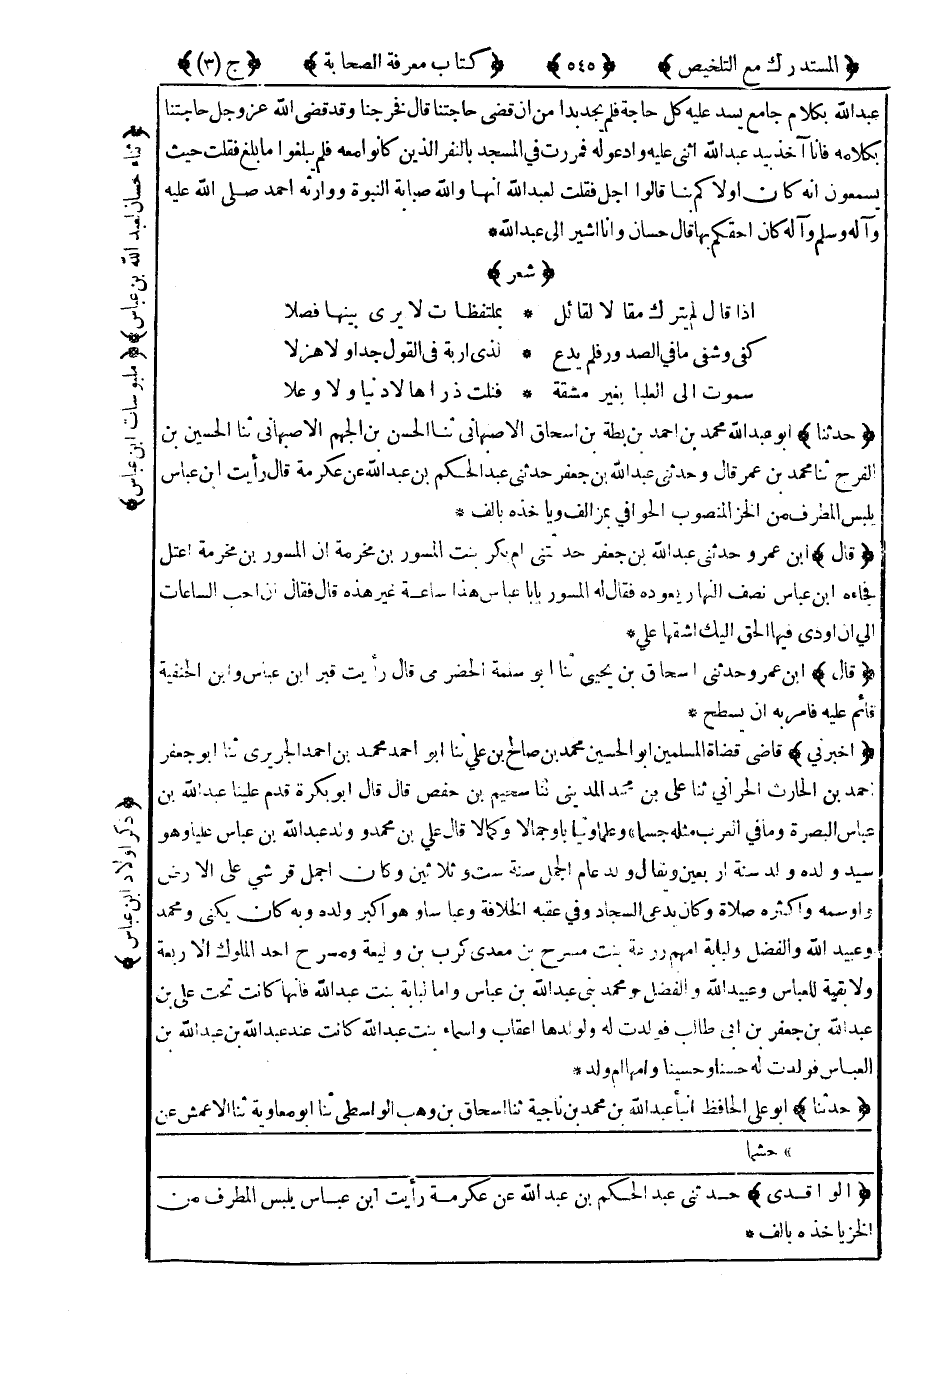 ﴿ المستدرك مع التلخيص ﴾ ﴿ ٥٤٥ ﴾ ﴿ كتاب معرفة الصحابة ﴾ ﴿ ج (٣) ﴾
عبدالله بكلام جامع يسد عليه كل حاجة فلم يجد بدا من ان قضى حاجتنا قال فخرجنا وقد قضى الله عز وجل حاجتنا
بكلامه فانا آخذ بيد عبدالله اثنى عليه وادعو له فمررت في المسجد بالنفر الذين كانوا معه فلم يبلغوا ما بلغ فقلت حيث
يسمعون انه كان اولاكم بنا قالوا اجل فقلت لعبدالله انها والله صبابة النبوة ووارثه احمد صلى الله عليه
وآله وسلم وآله كان احقكم بها قال حسان وانا اشير الى عبدالله *
﴿ شعر ﴾
اذا قال لم يترك مقالا لقائل * بملتفظات لا يرى بينها فصلا
كفى وشفى ما في الصدور فلم يدع * لذى اربة فى القول جدا ولا هزلا
سموت الى العليا بغير مشقة * فنلت ذراها لا دنيا ولا وعلا
﴿ حدثنا ﴾ ابو عبدالله محمد بن احمد بن بطة بن اسحاق الاصبهانى ثنا الحسن بن الجهم الاصبهانى ثنا الحسين بن
الفرح ثنا محمد بن عمر قال وحدثنى عبدالله بن جعفر حدثنى عبد الحكيم بن عبدالله عن عكرمة قال رأيت ابن عباس
يلبس المطرف من الخز المنصوب الحوافي بمز الف ويأخذه بالف *
﴿ قال ﴾ ابن عمر وحدثنى عبدالله بن جعفر حدثتنى ام بكر بنت المسور بن مخرمة ان المسور بن مخرمة اعتل
فجاءه ابن عباس نصف النهار يعوده فقال له المسور يابا عباس هذا ساعة غير هذه قال فقال ان احب الساعات
الي ان اودى فيها الحق اليك اشقها علي *
﴿ قال ﴾ ابن عمر وحدثنى اسحاق بن يحيى ثنا ابو سلمة الحضرمى قال رأيت قبر ابن عباس وابن الحنفية
قائم عليه فامر به ان يسطح *
﴿ اخبرني ﴾ قاضى قضاة المسلمين ابو الحسين محمد بن صالح بن علي ثنا ابو احمد محمد بن احمد الجريرى ثنا ابو جعفر
احمد بن الحارث الحراني ثنا على بن محمد المديني ثنا سحيم بن حفص قال قال ابو بكرة قدم علينا عبدالله بن
عباس البصرة وما في العرب مثله جسما» وعلما وثيابا وجمالا وكمالا قال علي بن محمد وولد عبدالله بن عباس عليا وهو
سيد ولده ولد سنة اربعين ويقال ولد عام الجمل سنة ست وثلاثين وكان اجمل قرشي على الارض
واوسمه واكثره صلاة وكان يدعى السجاد وفي عقبه الخلافة وعباسا وهو اكبر ولده وبه كان يكنى ومحمد
وعبيد الله والفضل ولبابة امهم زرعة بنت مسرح بن معدى كرب بن وليعة ومسرح احد الملوك الاربعة
ولا بقية للعباس وعبيدالله والفضل ومحمد بنى عبدالله بن عباس واما لبابة بنت عبدالله فانها كانت تحت على بن
عبدالله بن جعفر بن ابى طالب فولدت له ولولدها اعقاب واسماء بنت عبدالله كانت عند عبدالله بن عبدالله بن
العباس فولدت له حسنا وحسينا وامها ام ولد *
﴿ حدثنا ﴾ ابو على الحافظ انبأ عبدالله بن محمد بن ناجية ثنا اسحاق بن وهب الواسطى ثنا ابو معاوية ثنا الاعمش عن
» حشما
﴿ الواقدى ﴾ حدثنى عبد الحكم بن عبد الله عن عكرمة رأيت ابن عباس يلبس المطرف من
الخز ياخذه بالف *
﴿ ثناء حسان لعبد الله بن عباس ﴾
﴿ ملبوسات ابن عباس ﴾
﴿ ذكر اولاد ابن عباس ﴾